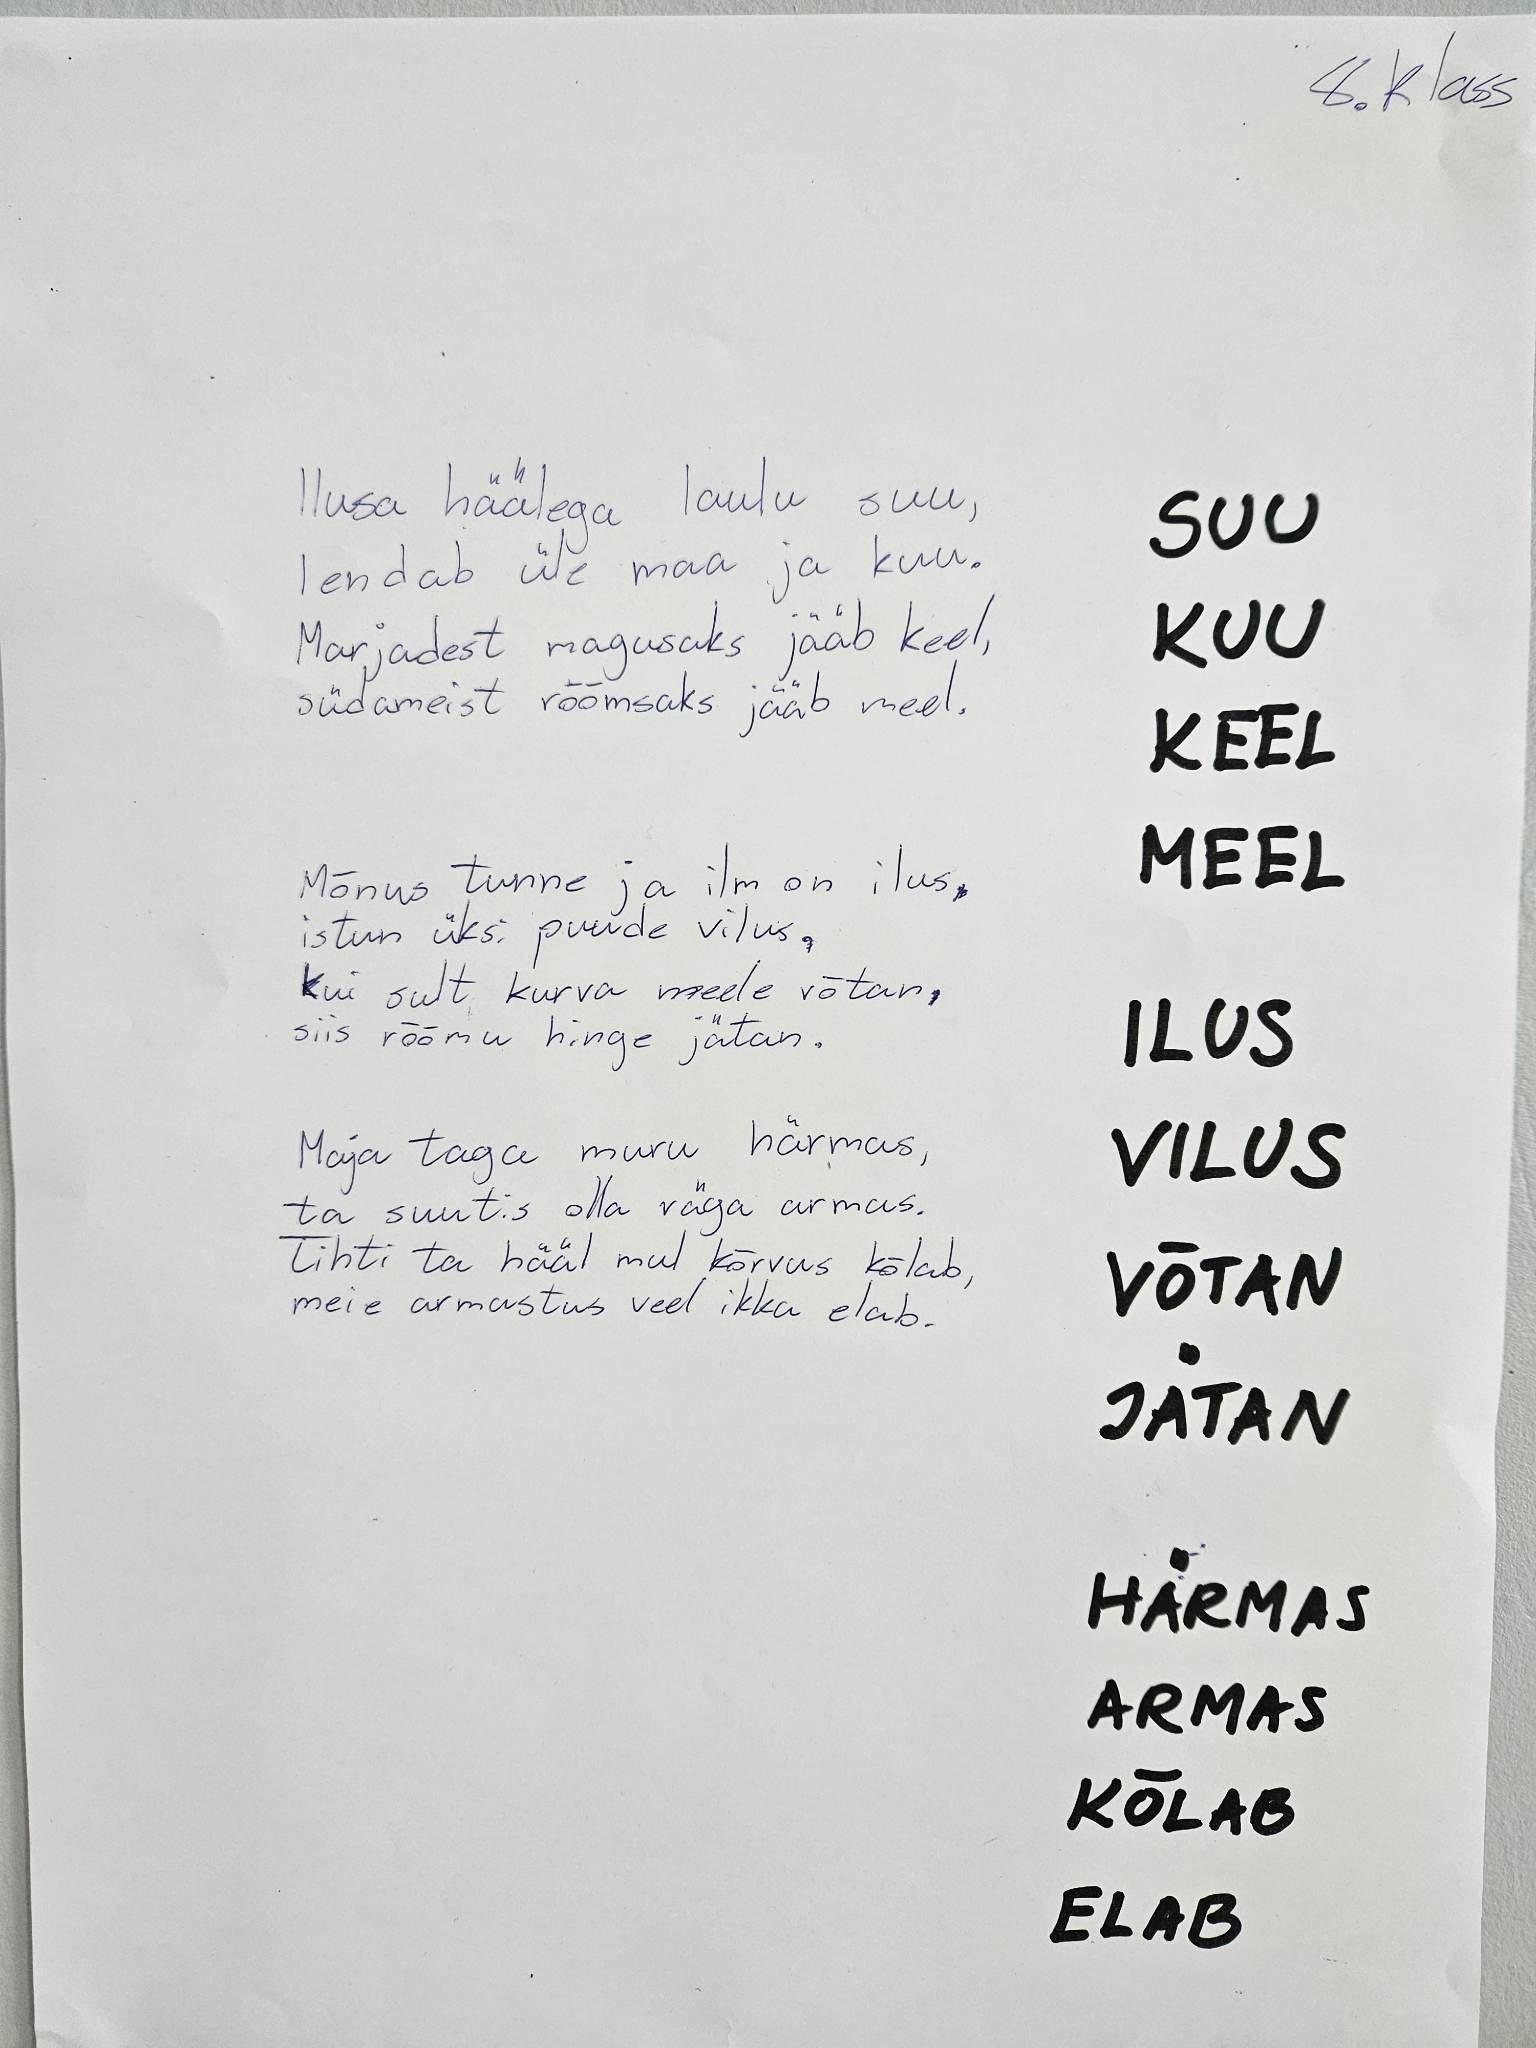 8. klass
Ilusa häälega laulu suu,
lendab üle maa ja kuu.
Marjadest magusaks jääb keel,
südameist rõõmsaks jääb meel.
Mõnus tunne ja ilm on ilus,
istun üksi puude vilus,
kui sult kurva meele võtan,
siis rõõmu hinge jätan.
Maja taga muru härmas,
ta suutis olla väga armas.
Tihti ta hääl mul kõrvus kõlab,
meie armastus veel ikka elab.
SUU
KUU
KEEL
MEEL
ILUS
VILUS
VÕTAN
JÄTAN
HÄRMAS
ARMAS
KÕLAB
ELAB